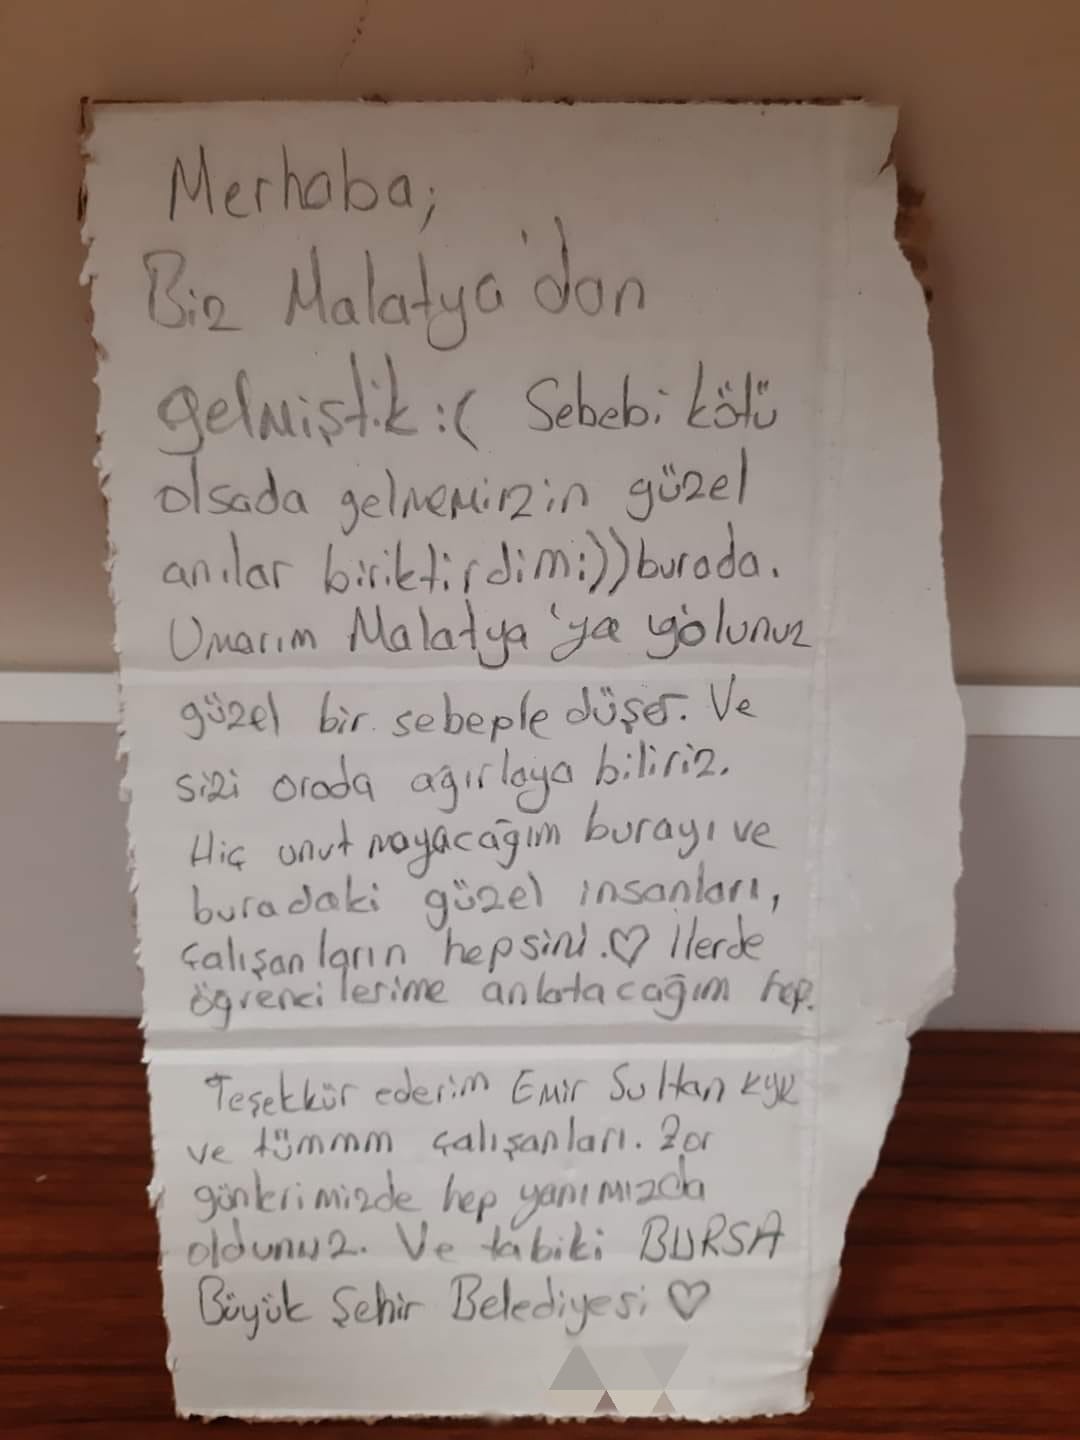 Merhaba;
Biz Malatya'dan
gelmiştik :( Sebebi kötü
olsada gelmemizin güzel
anılar biriktirdim:)) burada.
Umarım Malatya'ya yolunuz
güzel bir sebeple düşer. Ve
sizi orada ağırlaya biliriz.
Hiç unut mayacağım burayı ve
buradaki güzel insanları,
çalışanların hepsini.♡ İlerde
öğrencilerime anlatacağım hep.
Teşekkür ederim Emir Sultan KYK
ve tümmm çalışanları. Zor
günlerimizde hep yanımızda
oldunuz. Ve tabiki BURSA
Büyük Şehir Belediyesi ♡